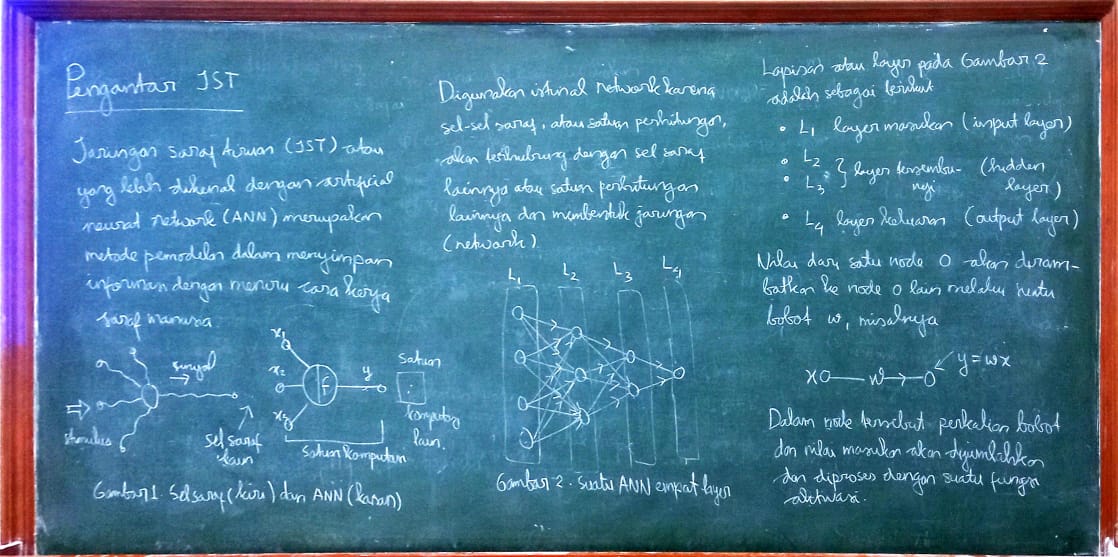 Pengantar JST
Jaringan saraf tiruan (JST) atau
yang lebih dikenal dengan artificial
neural network (ANN) merupakan
metode pemodelan dalam menyimpan
informasi dengan meniru cara kerja
saraf manusia
stimulus
sinyal
sel saraf
lain
x1
x2
x3
f
y
satuan
komputasi
lain.
Satuan komputasi
Gambar 1. Sel saraf (kiri) dan ANN (kanan)
Digunakan istilah network karena
sel-sel saraf, atau satuan perhitungan,
akan terhubung dengan sel saraf
lainnya atau satuan perhitungan
lainnya dan membentuk jaringan
(network).
L1 L2 L3 L4
Gambar 2. Suatu ANN empat layer
Lapisan atau layer pada Gambar 2
adalah sebagai berikut
• L1 layer masukan (input layer)
• L2
• L3 } layer tersembu-
nyi
(hidden
layer)
• L4 layer keluaran (output layer)
Nilai dari satu node O akan diram-
batkan ke node O lain melalui suatu
bobot w, misalnya
x O — w → O y = wx
Dalam node tersebut perkalian bobot
dan nilai masukan akan dijumlahkan
dan diproses dengan suatu fungsi
aktivasi.